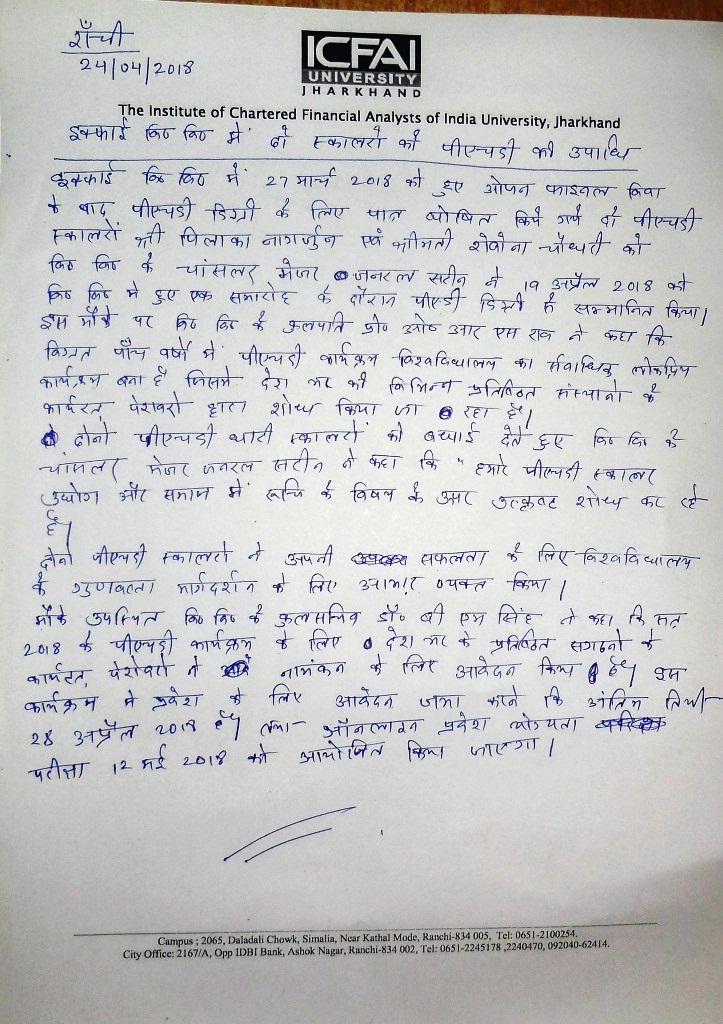 राँची
24/04/2018
ICFAI
UNIVERSITY
JHARKHAND
The Institute of Chartered Financial Analysts of India University, Jharkhand
इक्फाई वि० वि० में दो स्कालरों को पीएचडी की उपाधि
इक्फाई वि० वि० में 27 मार्च 2018 को हुए ओपन फाइनल विवा
के बाद पीएचडी डिग्री के लिए पात्र घोषित किये गये दो पीएचडी
स्कालरों श्री पिलाका नागार्जुन एवं श्रीमती शोवोना चौधरी को
वि० वि० के चांसलर मेजर जनरल सटीन ने 19 अप्रैल 2018 को
वि० वि० में हुए एक समारोह के दौरान पीएडी डिग्री से सम्मानित किया।
इस मौके पर वि० वि० के कुलपति प्रो० ओ० आर एस राव ने कहा कि
विगत पाँच वर्षों में पीएचडी कार्यक्रम विश्वविद्यालय का सर्वाधिक लोकप्रिय
कार्यक्रम बना है जिसमें देश भर की विभिन्न प्रतिष्ठित संस्थानो के
कार्यरत पेशवरो द्वारा शोध किया जा रहा है।
दोनो पीएचडी धारी स्कालरों को बधाई देते हुए वि० वि० के
चांसलर मेजर जनरल सटीन ने कहा कि "हमारे पीएचडी स्कालर
उद्योग और समाज में रूचि के विषय के उपर उत्कृष्ट शोध कर रहे
है।
दोनो पीएचडी स्कालरो ने अपनी सफलता के लिए विश्वविद्यालय
के गुणवत्ता मार्गदर्शन के लिए आभार व्यक्त किया।
मौके उपस्थित वि० वि० के कुलसचिव डॉ० बी एम सिंह ने कहा कि सत्र
2018 के पीएचडी कार्यक्रम के लिए देश भर के प्रतिष्ठित सगठनो के
कार्यरत पेशेवरों ने नामंकन के लिए आवेदन किया है। इस
कार्यक्रम में प्रवेश के लिए आवेदन जमा करने कि अंतिम तिथी
28 अप्रैल 2018 है। तथा ऑनलाइन प्रवेश योग्यता
परीक्षा 12 मई 2018 को आयोजित किया जाएगा।
Campus ; 2065, Daladali Chowk, Simalia, Near Kathal Mode, Ranchi-834 005, Tel: 0651-2100254.
City Office: 2167/A, Opp IDBI Bank, Ashok Nagar, Ranchi-834 002, Tel: 0651-2245178 ,2240470, 092040-62414.